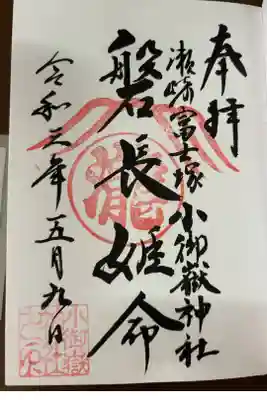 奉拝
瀬崎富士塚小御嶽神社
磐長姫命
令和三年五月九日
龍
小御嶽